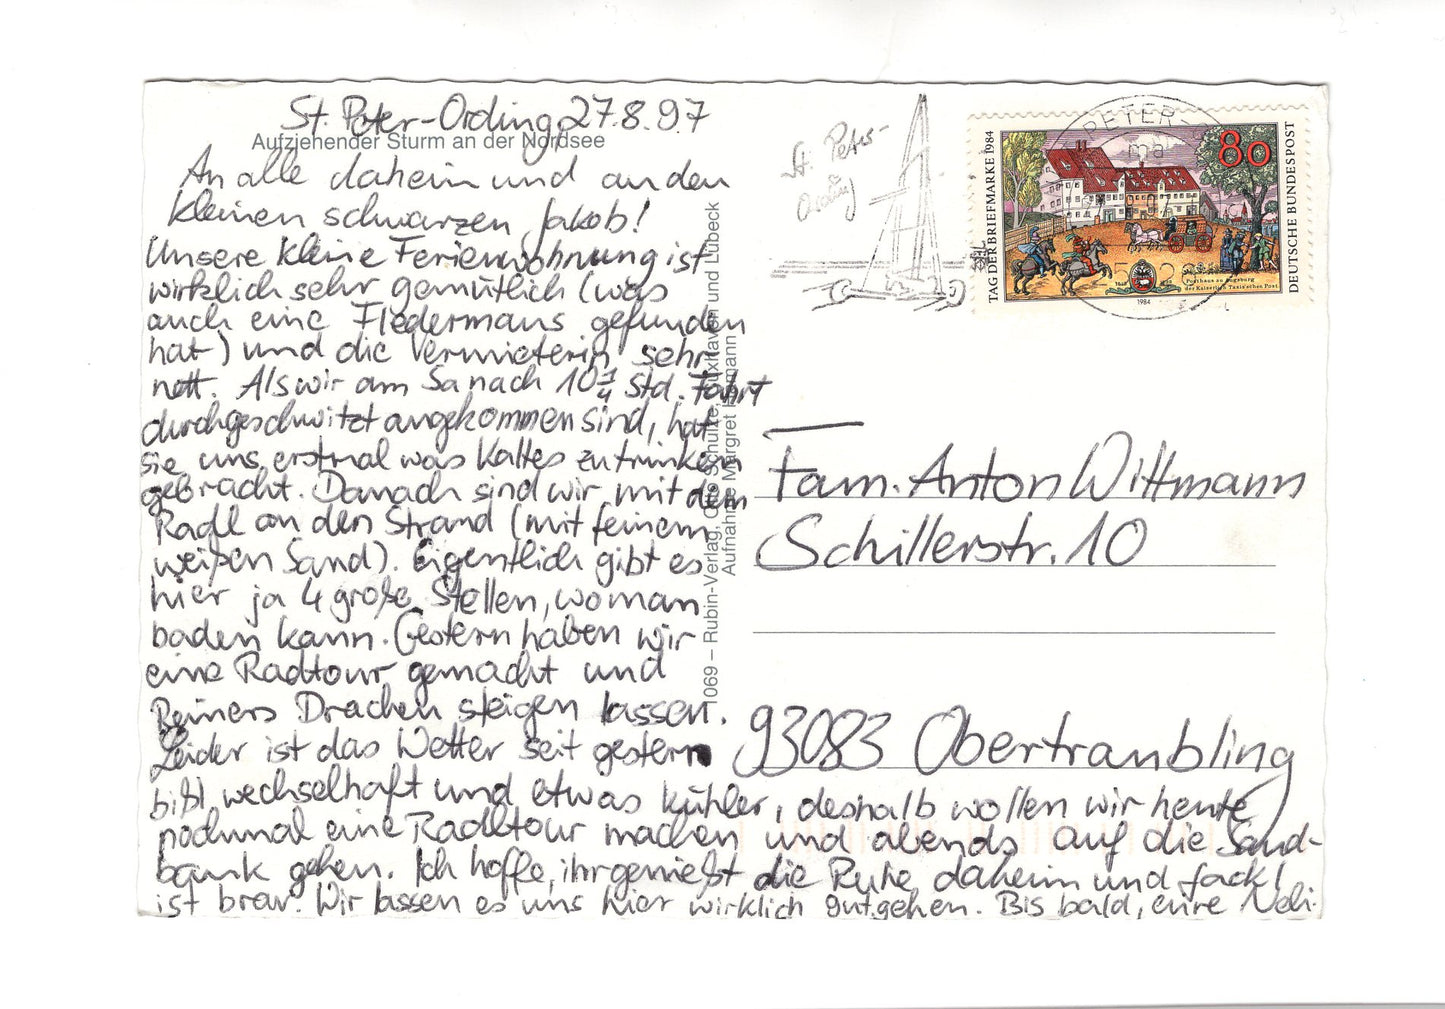 St. Peter-Ording, 27.8.97
Aufziehender Sturm an der Nordsee
An alle daheim und an den
kleinen schwarzen Jakob!
Unsere kleine Ferienwohnung ist
wirklich sehr gemütlich (was
auch eine Fledermaus gefunden
hat) und die Vermieterin sehr
nett. Als wir am Sa nach 10 1/4 Std. Fahrt
durchgeschwitzt angekommen sind, hat
sie uns erstmal was Kaltes zu trinken
gebracht. Danach sind wir mit dem
Radl an den Strand (mit feinem
weißen Sand). Eigentlich gibt es
hier ja 4 große Stellen, wo man
baden kann. Gestern haben wir
eine Radtour gemacht und
Reiners Drachen steigen lassen.
Leider ist das Wetter seit gestern
bißl wechselhaft und etwas kühler, deshalb wollen wir heute
nochmal eine Radltour machen und abends auf die Sand-
bank gehen. Ich hoffe, ihr genießt die Ruhe daheim und Jackl
ist brav. Wir lassen es uns hier wirklich gut gehen. Bis bald, eure
1069 – Rubin-Verlag, Otto Schulze, Cuxhaven und Lübeck
Aufnahme Margret
St. Peter-
Ording
PETER-
TAG DER BRIEFMARKE 1984
80
DEUTSCHE BUNDESPOST
Posthaus zu Augsburg
der Kaiserlich Taxis'schen Post
1984
Fam. Anton Wittmann
Schillerstr. 10
93083 Obertraubling